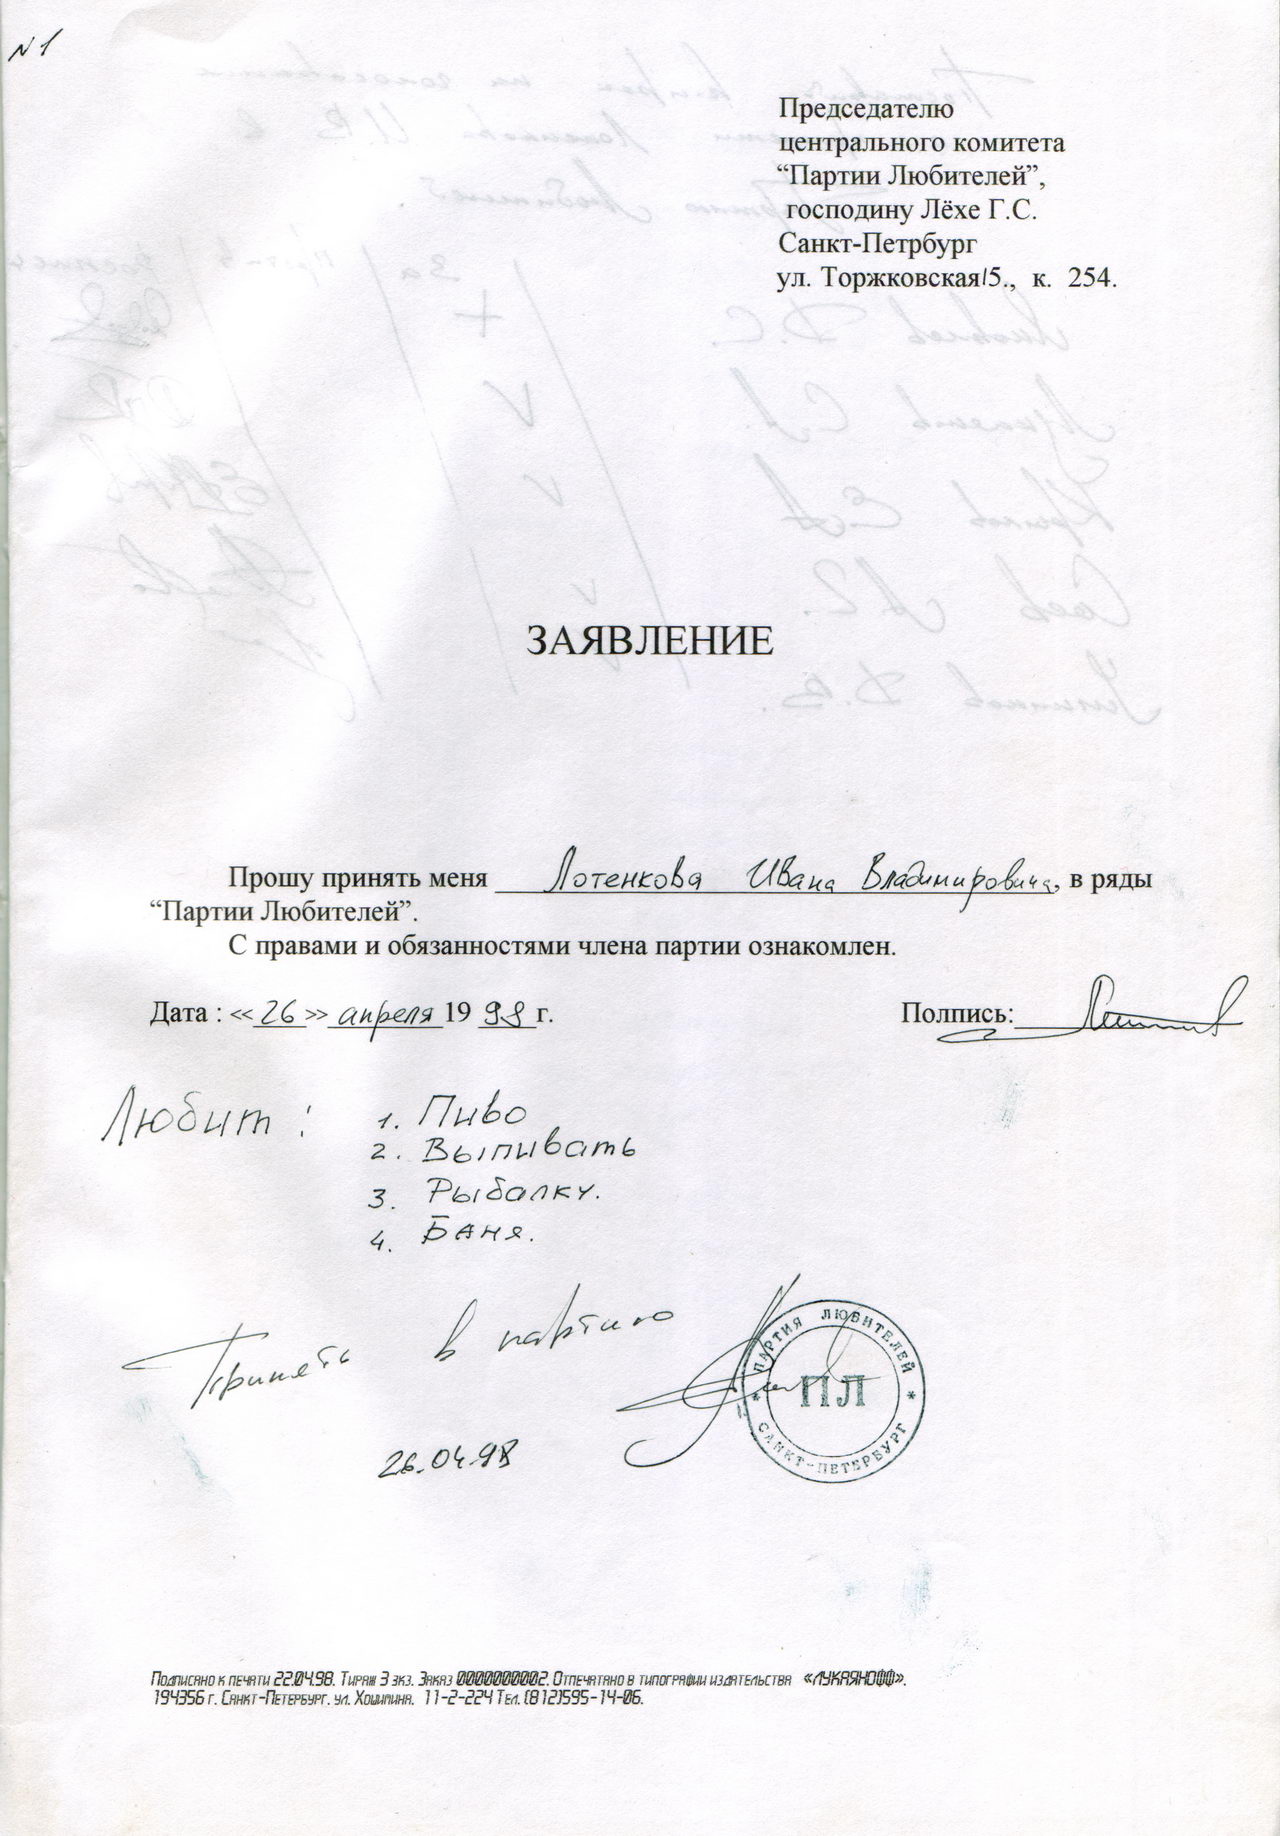 №1
Председателю
центрального комитета
“Партии Любителей”,
господину Лёхе Г.С.
Санкт-Петрбург
ул. Торжковская/5., к. 254.
ЗАЯВЛЕНИЕ
Прошу принять меня Лотенкова Ивана Владимировича, в ряды
“Партии Любителей”.
С правами и обязанностями члена партии ознакомлен.
Дата : <<26>> апреля 19 98 г. Полпись:
Любит : 1. Пиво
2. Выпивать
3. Рыбалку.
4. Баня.
Принять в партию
ПАРТИЯ ЛЮБИТЕЛЕЙ
ПЛ
* САНКТ-ПЕТЕРБУРГ *
26.04.98
Подписано к печати 22.04.98. Тираж 3 зкз. Заказ 0000000002. Отпечатано в типографии издательства «ЛУКАЯНОФФ».
194356 г. Санкт-Петербург. ул. Хошимина. 11-2-224 Тел. (812)595-14-06.